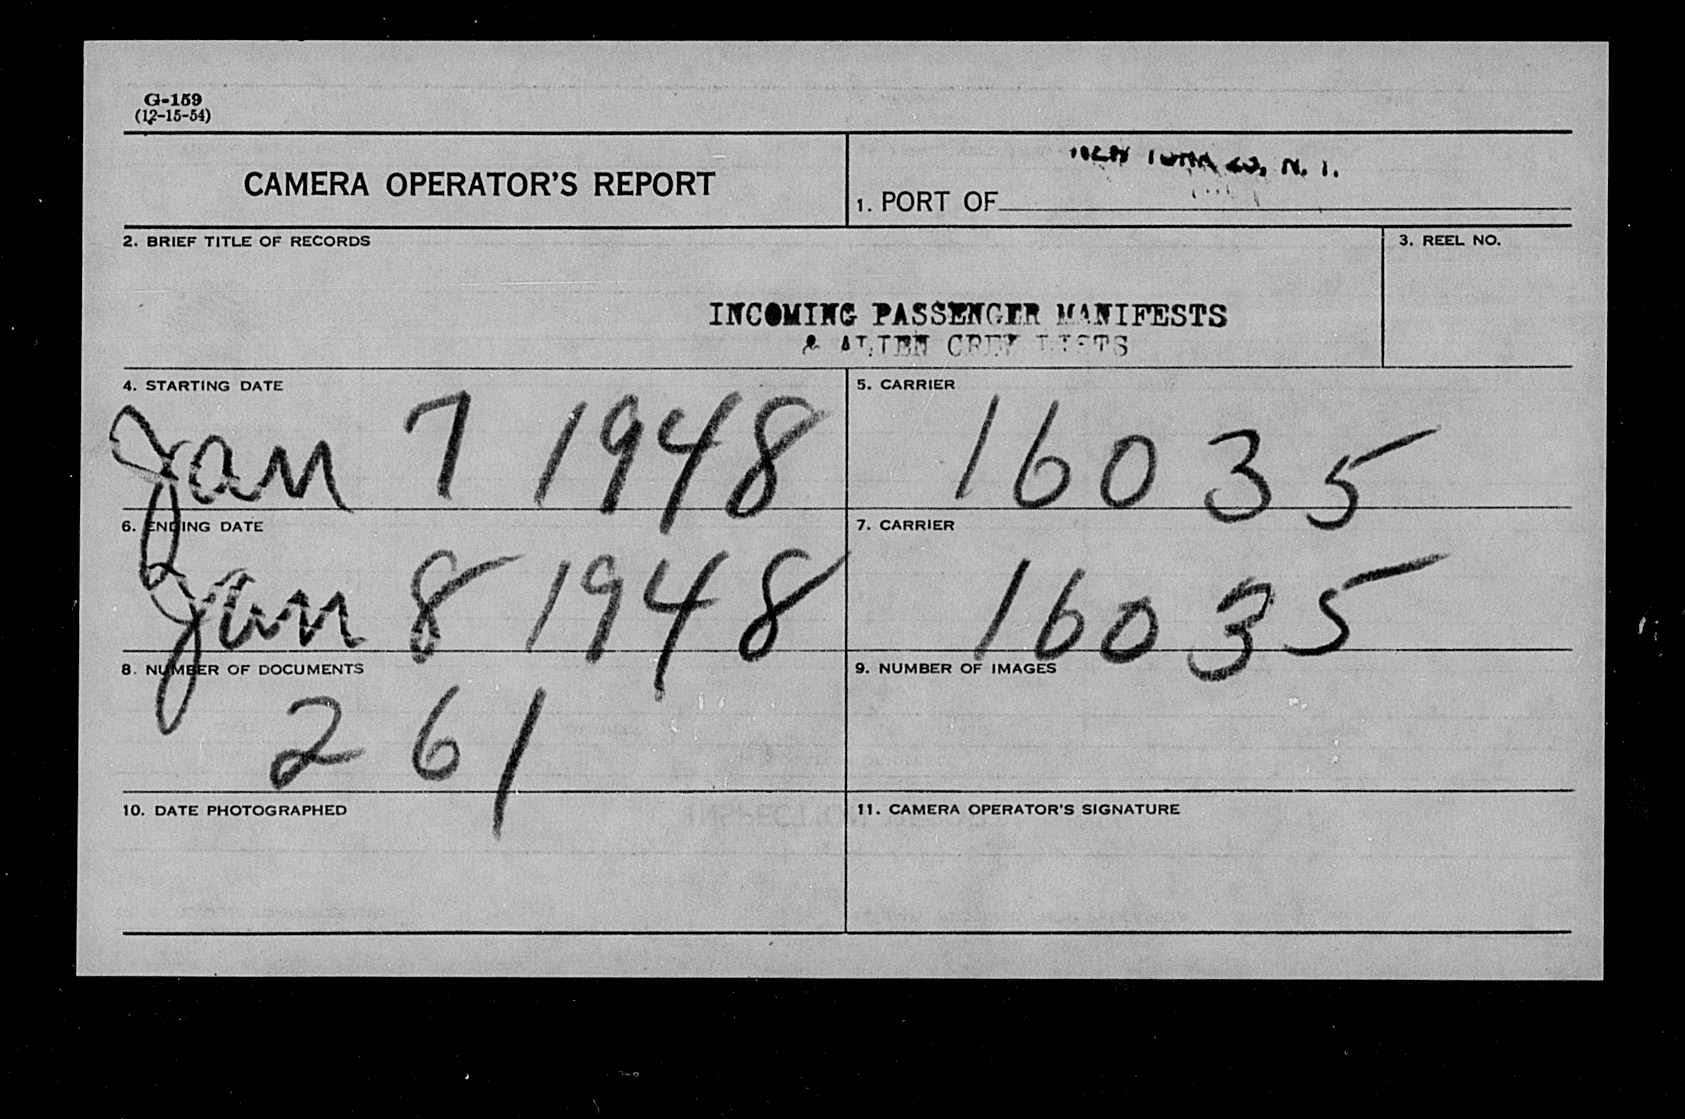 G-159
(12-15-54)
CAMERA OPERATOR'S REPORT
NEW YORK 23, N. Y.
1. PORT OF
2. BRIEF TITLE OF RECORDS
3. REEL NO.
INCOMING PASSENGER MANIFESTS
& ALIEN CREW LISTS
4. STARTING DATE
Jan 7 1948
5. CARRIER
16035
6. ENDING DATE
Jan 8 1948
7. CARRIER
16035
8. NUMBER OF DOCUMENTS
261
9. NUMBER OF IMAGES
10. DATE PHOTOGRAPHED
11. CAMERA OPERATOR'S SIGNATURE